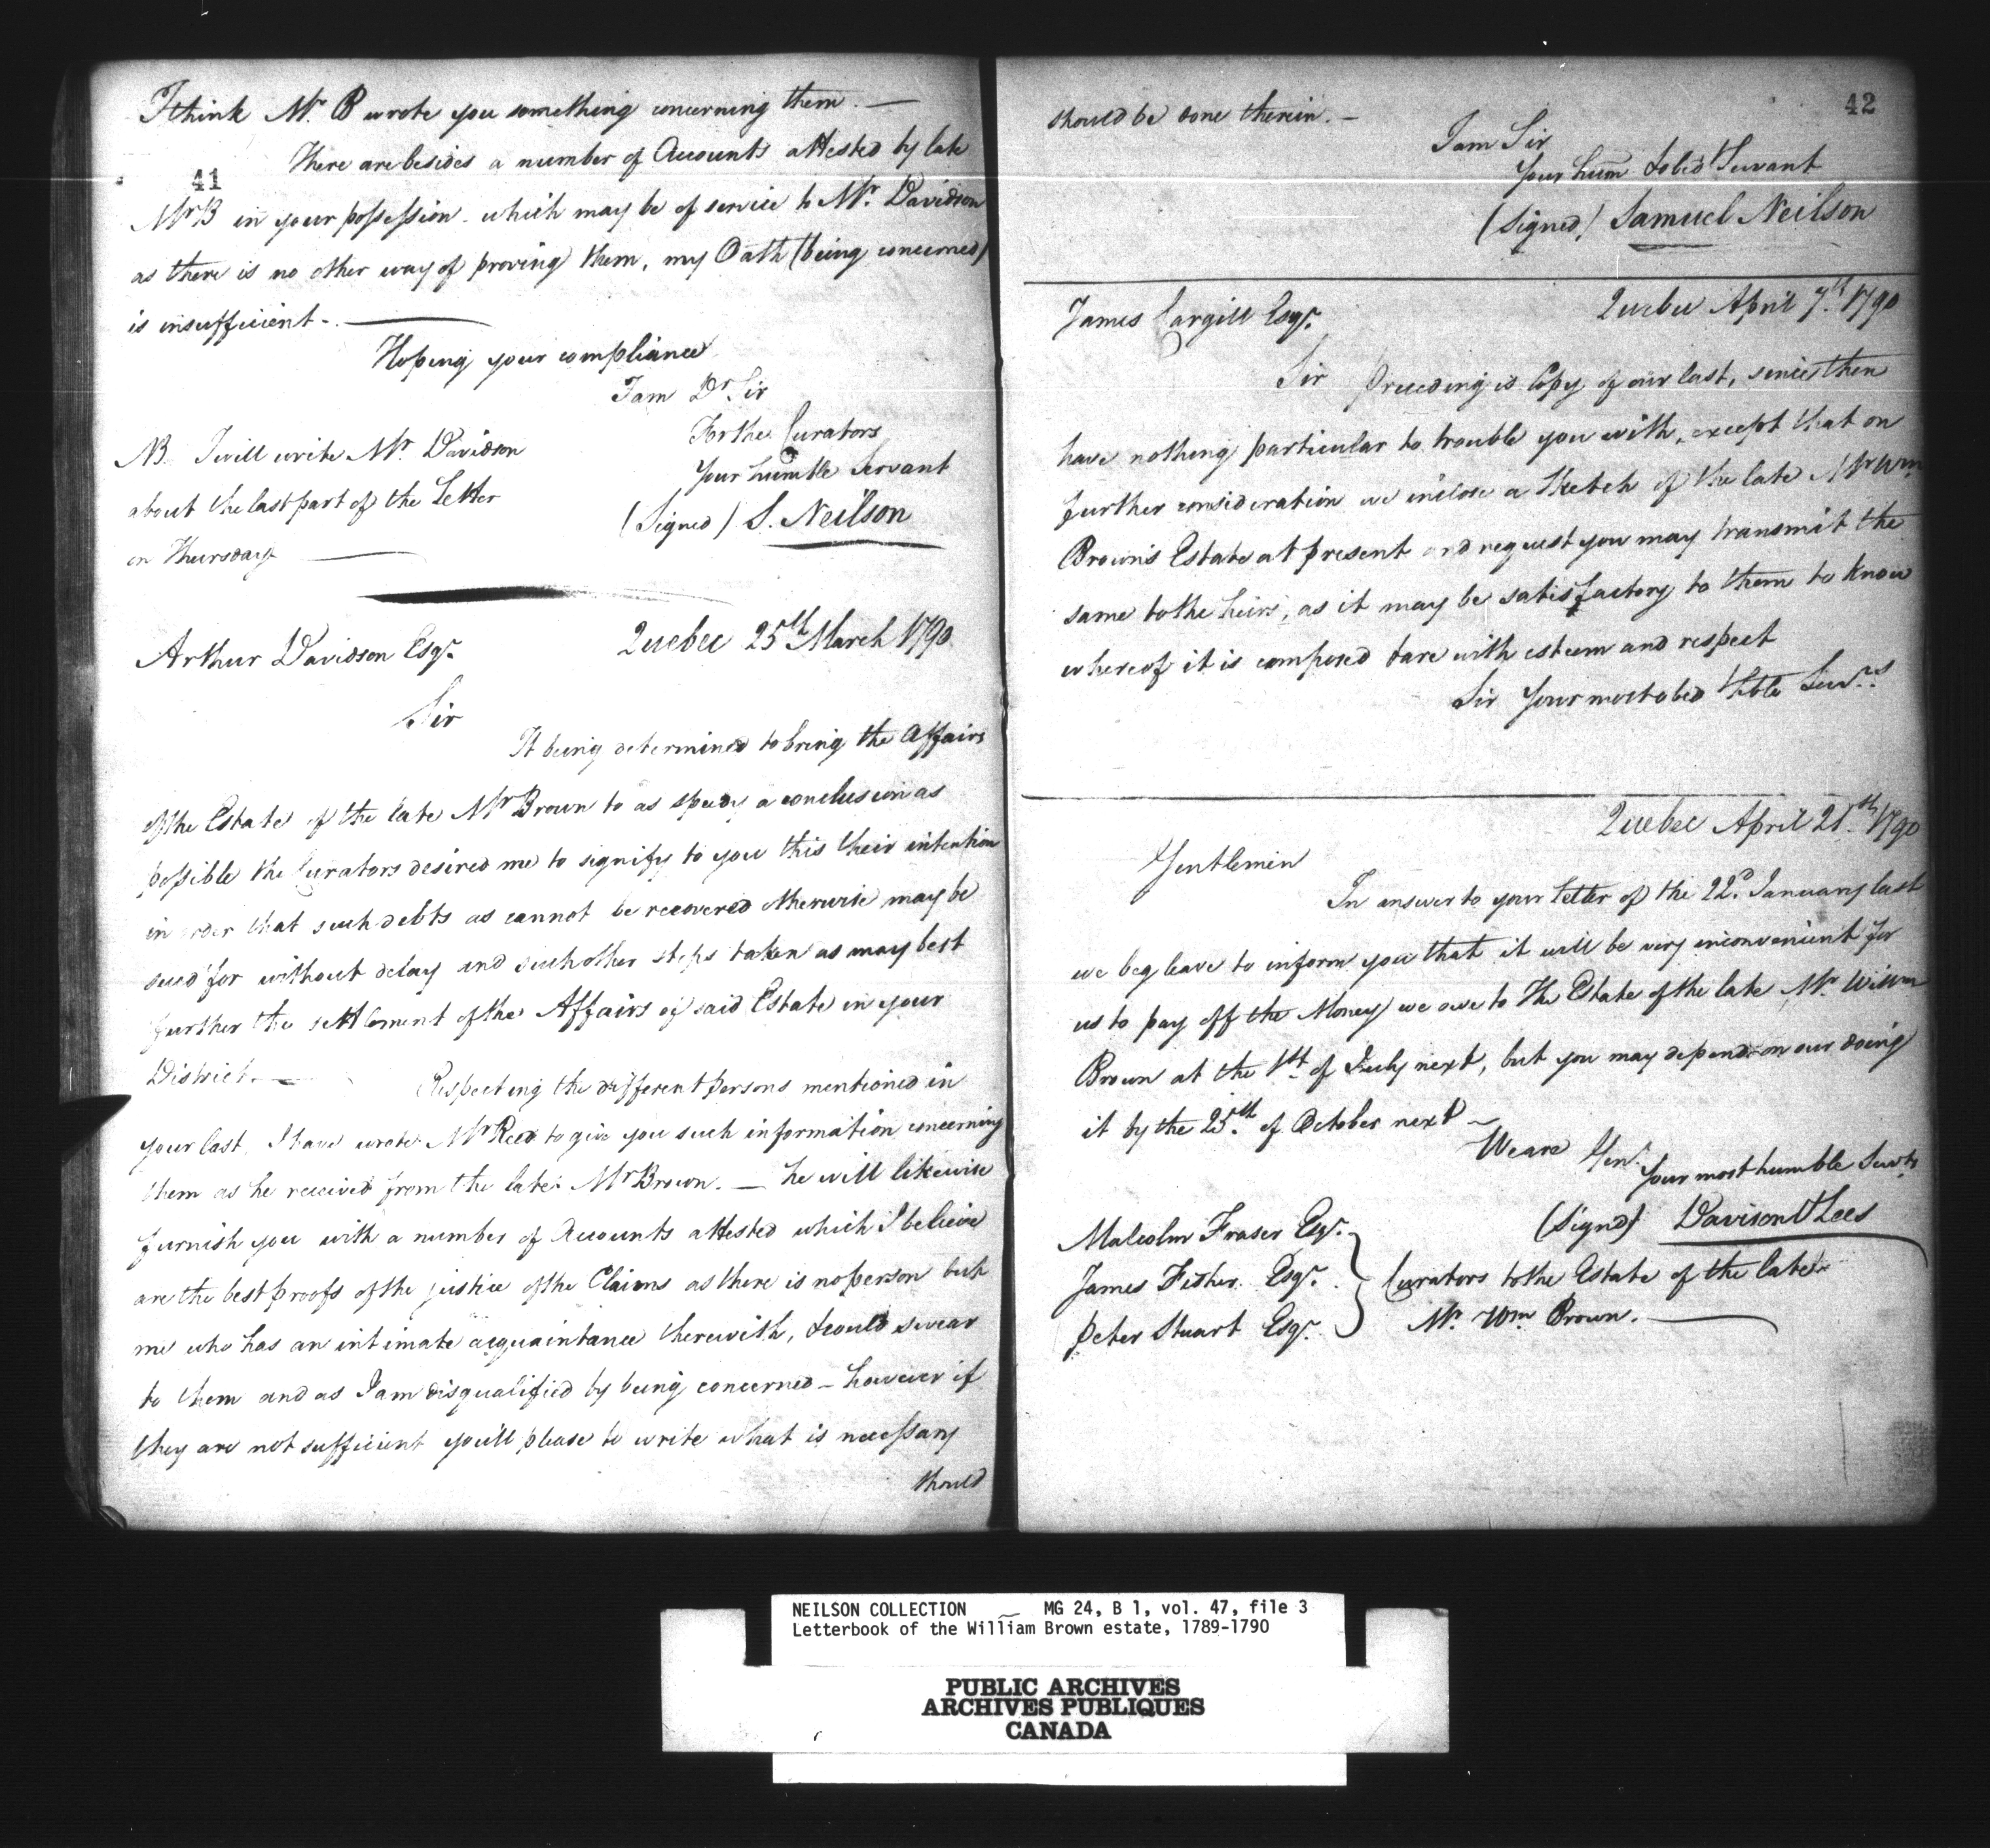 I think Mr. B wrote you something concerning them. —
There are besides a number of Accounts attested by late
41
Mr B in your possession which may be of service to Mr. Davidson
as there is no other way of proving them, my Oath (being concerned)
is insufficient -. —
Hoping your compliance
I am Dr. Sir
For the Curators
Your humble Servant
(Signed) S. Neilson
NB. I will write Mr. Davidson
about the last part of the Letter
on Thursday —
Arthur Davidson Esqr.
Quebec 25th March 1790.
Sir
It being determined to bring the Affairs
of the Estate of the late Mr Brown to as speedy a conclusion as
possible the Curators desired me to signify to you this their intention
in order that such debts as cannot be recovered otherwise may be
sued for without delay and such other steps taken as may best
further the settlement of the Affairs of said Estate in your
District. —
Respecting the different persons mentioned in
your last, I have wrote Mr Reid to give you such information concerning
them as he received from the late Mr Brown. — he will likewise
furnish you with a number of Accounts attested which I believe
are the best proofs of the justice of the Claims as there is no person but
me who has an intimate acquaintance therewith, & could swear
to them and as I am disqualified by being concerned — however if
they are not sufficient you'll please to write what is necessary
should
42
should be done therein. —
I am Sir
Your hum & obed Servant
(Signed) Samuel Neilson
James Cargill Esqr.
Quebec April 7th 1790
Sir Preceeding is Copy of our last, since then
have nothing particular to trouble you with, except that on
further consideration we inclose a Sketch of the late Mr Wm
Brown's Estate at present and request you may transmit the
same to the heirs, as it may be satisfactory to them to know
whereof it is composed & are with esteem and respect
Sir Your most obed hble Servts
Quebec April 21st 1790
Gentlemen
In answer to your letter of the 22d. January last
we beg leave to inform you that it will be very inconvenient for
us to pay off the Money we owe to The Estate of the late Mr. Willm
Brown at the 1st of July next, but you may depend on our doing
it by the 25th of October next —
We are Gen.
Your most humble Servts
(Signd) Davison & Lees
Malcolm Fraser Esqr.
James Fisher Esqr.
Peter Stuart Esqr.
Curators to the Estate of the late
Mr. Wm Brown. —
NEILSON COLLECTION — MG 24, B 1, vol. 47, file 3
Letterbook of the William Brown estate, 1789-1790
PUBLIC ARCHIVES
ARCHIVES PUBLIQUES
CANADA